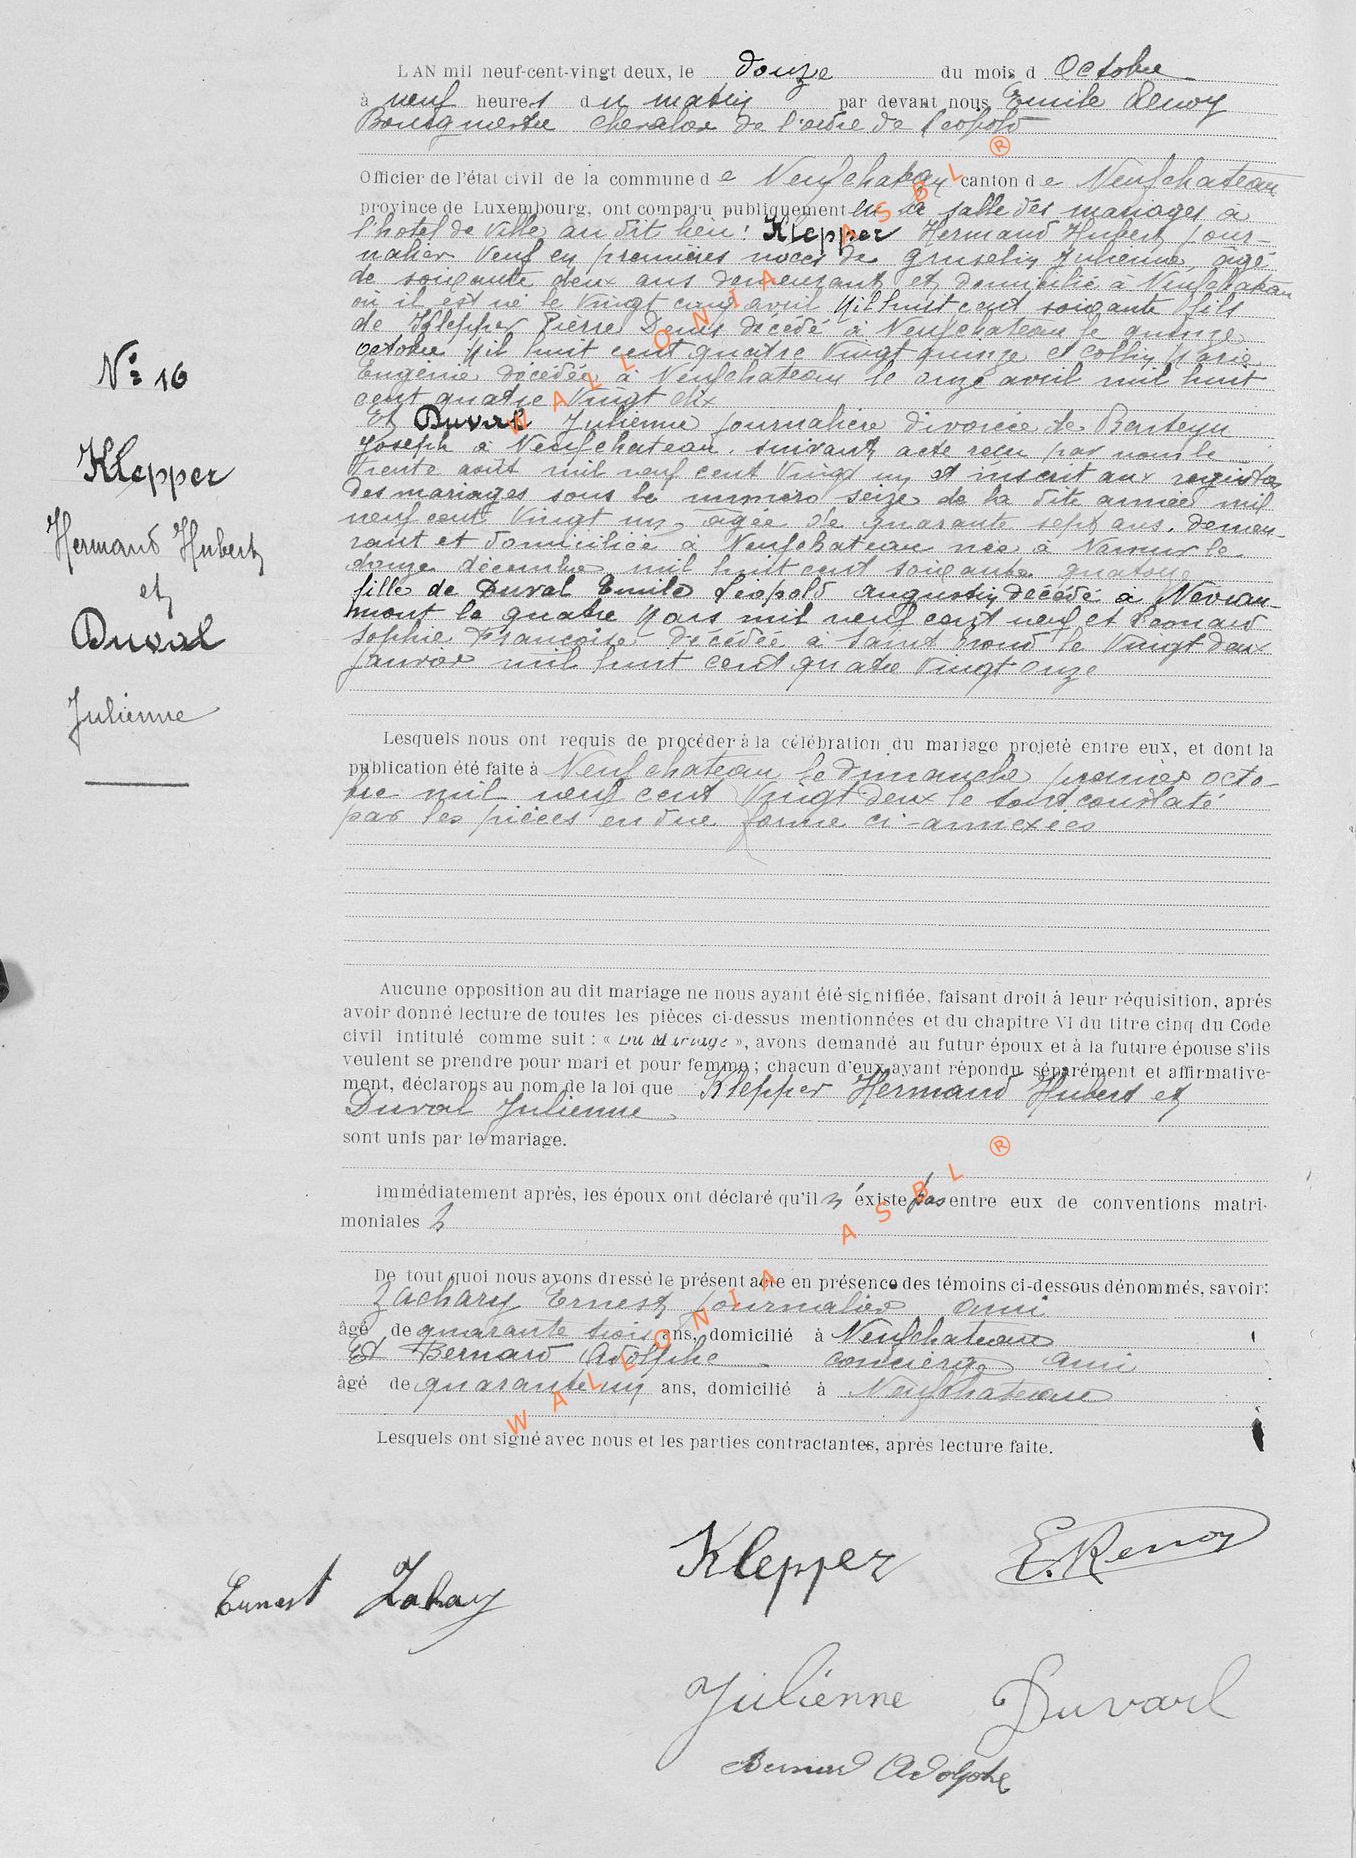 L AN mil neuf-cent-vingt deux, le douze du mois d Octobre
à neuf heures du matin par devant nous Emile Renoy
Bourgmestre chevalier de l'ordre de Léopold
Officier de l'état civil de la commune de Neufchateau canton de Neufchateau
province de Luxembourg, ont comparu publiquement en la salle des mariages à
l'hotel de Ville au dit lieu : Klepper Hermand Hubert jour-
nalier Veuf en premières noces de Julienne, agé
de soixante deux ans demeurant et domicilié à Neufchateau
où il est né le Vingt cinq avril Mil huit cent soixante fils
de Klepper Pierre Denis décédé à Neufchateau le quinze
octobre Mil huit cent quatre Vingt quinze et Marie
Eugénie decédée à Neufchateau le onze avril mil huit
cent quatre Vingt dix
Et Duval Julienne journalière divorcée de
Joseph à Neufchateau suivant acte reçu par nous le
trente août mil neuf cent Vingt un et inscrit aux registres
des mariages sous le numéro seize de la dite année mil
neuf cent Vingt un, agée de quarante sept ans, demeu-
rant et domiciliée à Neufchateau née à Namur le
douze décembre mil huit cent soixante quatorze
fille de Duval Emile Léopold Augustin décédé à Neviau-
mont le quatre Mars mil neuf cent neuf et Leonard
Sophie Françoise décédée à Saint le Vingt deux
Janvier mil huit cent quatre Vingt onze
N° 16
Klepper
Hermand Hubert
et
Duval
Julienne
Lesquels nous ont requis de procéder à la célébration du mariage projeté entre eux, et dont la
publication été faite à Neufchateau le dimanche premier octo-
bre mil neuf cent Vingt deux le tout constaté
par les pièces en due forme ci-annexées
Aucune opposition au dit mariage ne nous ayant été signifiée, faisant droit à leur réquisition, après
avoir donné lecture de toutes les pièces ci-dessus mentionnées et du chapitre VI du titre cinq du Code
civil intitulé comme suit : « Du Mariage », avons demandé au futur époux et à la future épouse s'ils
veulent se prendre pour mari et pour femme ; chacun d'eux ayant répondu séparément et affirmative-
ment, déclarons au nom de la loi que Klepper Hermand Hubert et
Duval Julienne
sont unis par le mariage.
Immédiatement après, les époux ont déclaré qu'il n'éxiste pas entre eux de conventions matri-
moniales
De tout quoi nous avons dressé le présent acte en présence des témoins ci-dessous dénommés, savoir:
Zachary Ernest journalier ami
âgé de quarante trois ans, domicilié à Neufchateau
Et Bernard Adolphe concierge ami
âgé de quarante un ans, domicilié à Neufchateau
Lesquels ont signé avec nous et les parties contractantes, après lecture faite.
Klepper E. Renoy
Ernest Zabay
Julienne Duvarl
Bernard Adolphe
WALLONIA ASBL ®
WALLONIA ASBL ®